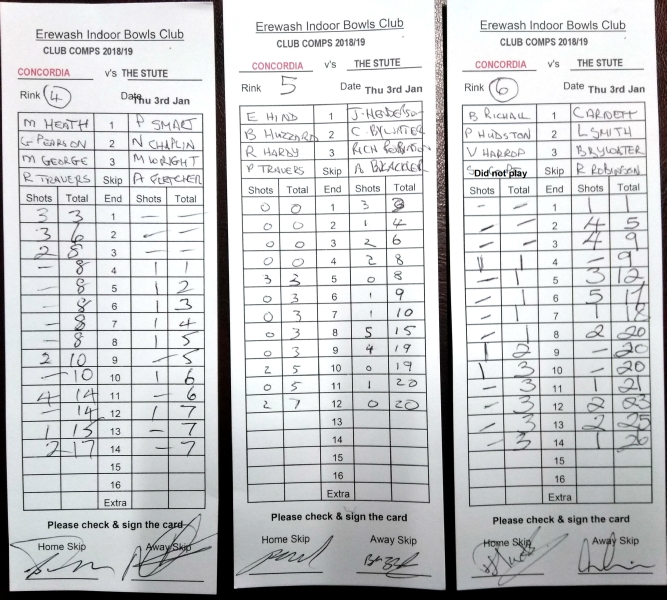 Erewash Indoor Bowls Club
CLUB COMPS 2018/19
CONCORDIA v's THE STUTE
Rink 4 Date Thu 3rd Jan
M HEATH 1 P SMART
G PEARSON 2 N CHAPLIN
M GEORGE 3 M WRIGHT
R TRAVERS Skip A FLETCHER
Shots Total End Shots Total
3 3 1 — —
3 6 2 — —
2 8 3 — —
— 8 4 1 1
— 8 5 1 2
— 8 6 1 3
— 8 7 1 4
— 8 8 1 5
2 10 9 — 5
— 10 10 1 6
4 14 11 — 6
— 14 12 1 7
1 15 13 — 7
2 17 14 — 7
15
16
Extra
Please check & sign the card
Home Skip Away Skip
Erewash Indoor Bowls Club
CLUB COMPS 2018/19
CONCORDIA v's THE STUTE
Rink 5 Date Thu 3rd Jan
E HIND 1 J. HENDERSON
B HUZZARD 2 C. BYWATER
R HARDY 3 RICH ROBINSON
P TRAVERS Skip A. BLACKLER
Shots Total End Shots Total
0 0 1 3 3
0 0 2 1 4
0 0 3 2 6
0 0 4 2 8
3 3 5 0 8
0 3 6 1 9
0 3 7 1 10
0 3 8 5 15
0 3 9 4 19
2 5 10 0 19
0 5 11 1 20
2 7 12 0 20
13
14
15
16
Extra
Please check & sign the card
Home Skip Away Skip
Erewash Indoor Bowls Club
CLUB COMPS 2018/19
CONCORDIA v's THE STUTE
Rink 6 Date Thu 3rd Jan
B RICHALL 1 C ARNETT
P HUDSTON 2 L SMITH
V HARROP 3 B BYWATER
Did not play Skip R ROBINSON
Shots Total End Shots Total
— — 1 1 1
— — 2 4 5
— — 3 4 9
1 1 4 — 9
— 1 5 3 12
— 1 6 5 17
— 1 7 1 18
— 1 8 2 20
1 2 9 — 20
1 3 10 — 20
— 3 11 1 21
— 3 12 2 23
— 3 13 2 25
— 3 14 1 26
15
16
Extra
Please check & sign the card
Home Skip Away Skip